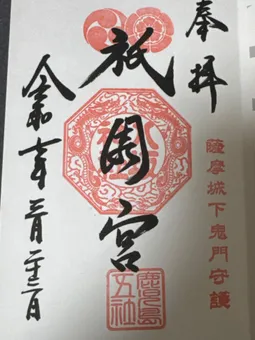 奉拝
薩摩城下鬼門守護
祇園宮
鹿児島
五社
令和年月日